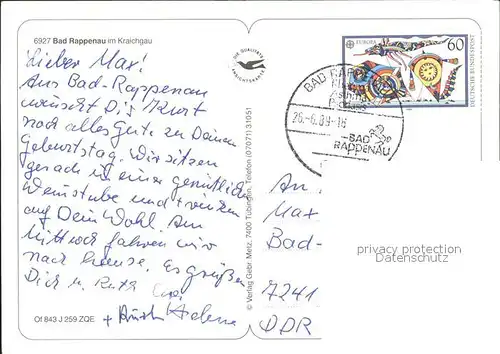 6927 Bad Rappenau im Kraichgau
Lieber Max!
Aus Bad-Rappenau
wünscht Dir Kurt
noch alles Gute zu Deinem
Geburtstag. Wir sitzen
gerade in einer gemütlichen
Weinstube und trinken
auf Dein Wohl. Am
Mittwoch fahren wir
nach hause. Es grüßen
Dich u. Ruth
+ Helene
Of 843 J 259 ZQE
DIE QUALITÄTS
ANSICHTSKARTE
© Verlag Gebr. Metz, 7400 Tübingen, Telefon (07071) 31051
EUROPA
60
DEUTSCHE BUNDESPOST
BAD RAPPENAU
26.-6.89.-16
BAD
RAPPENAU
An
Max
Bad-
7241
DDR
privacy protection
Datenschutz